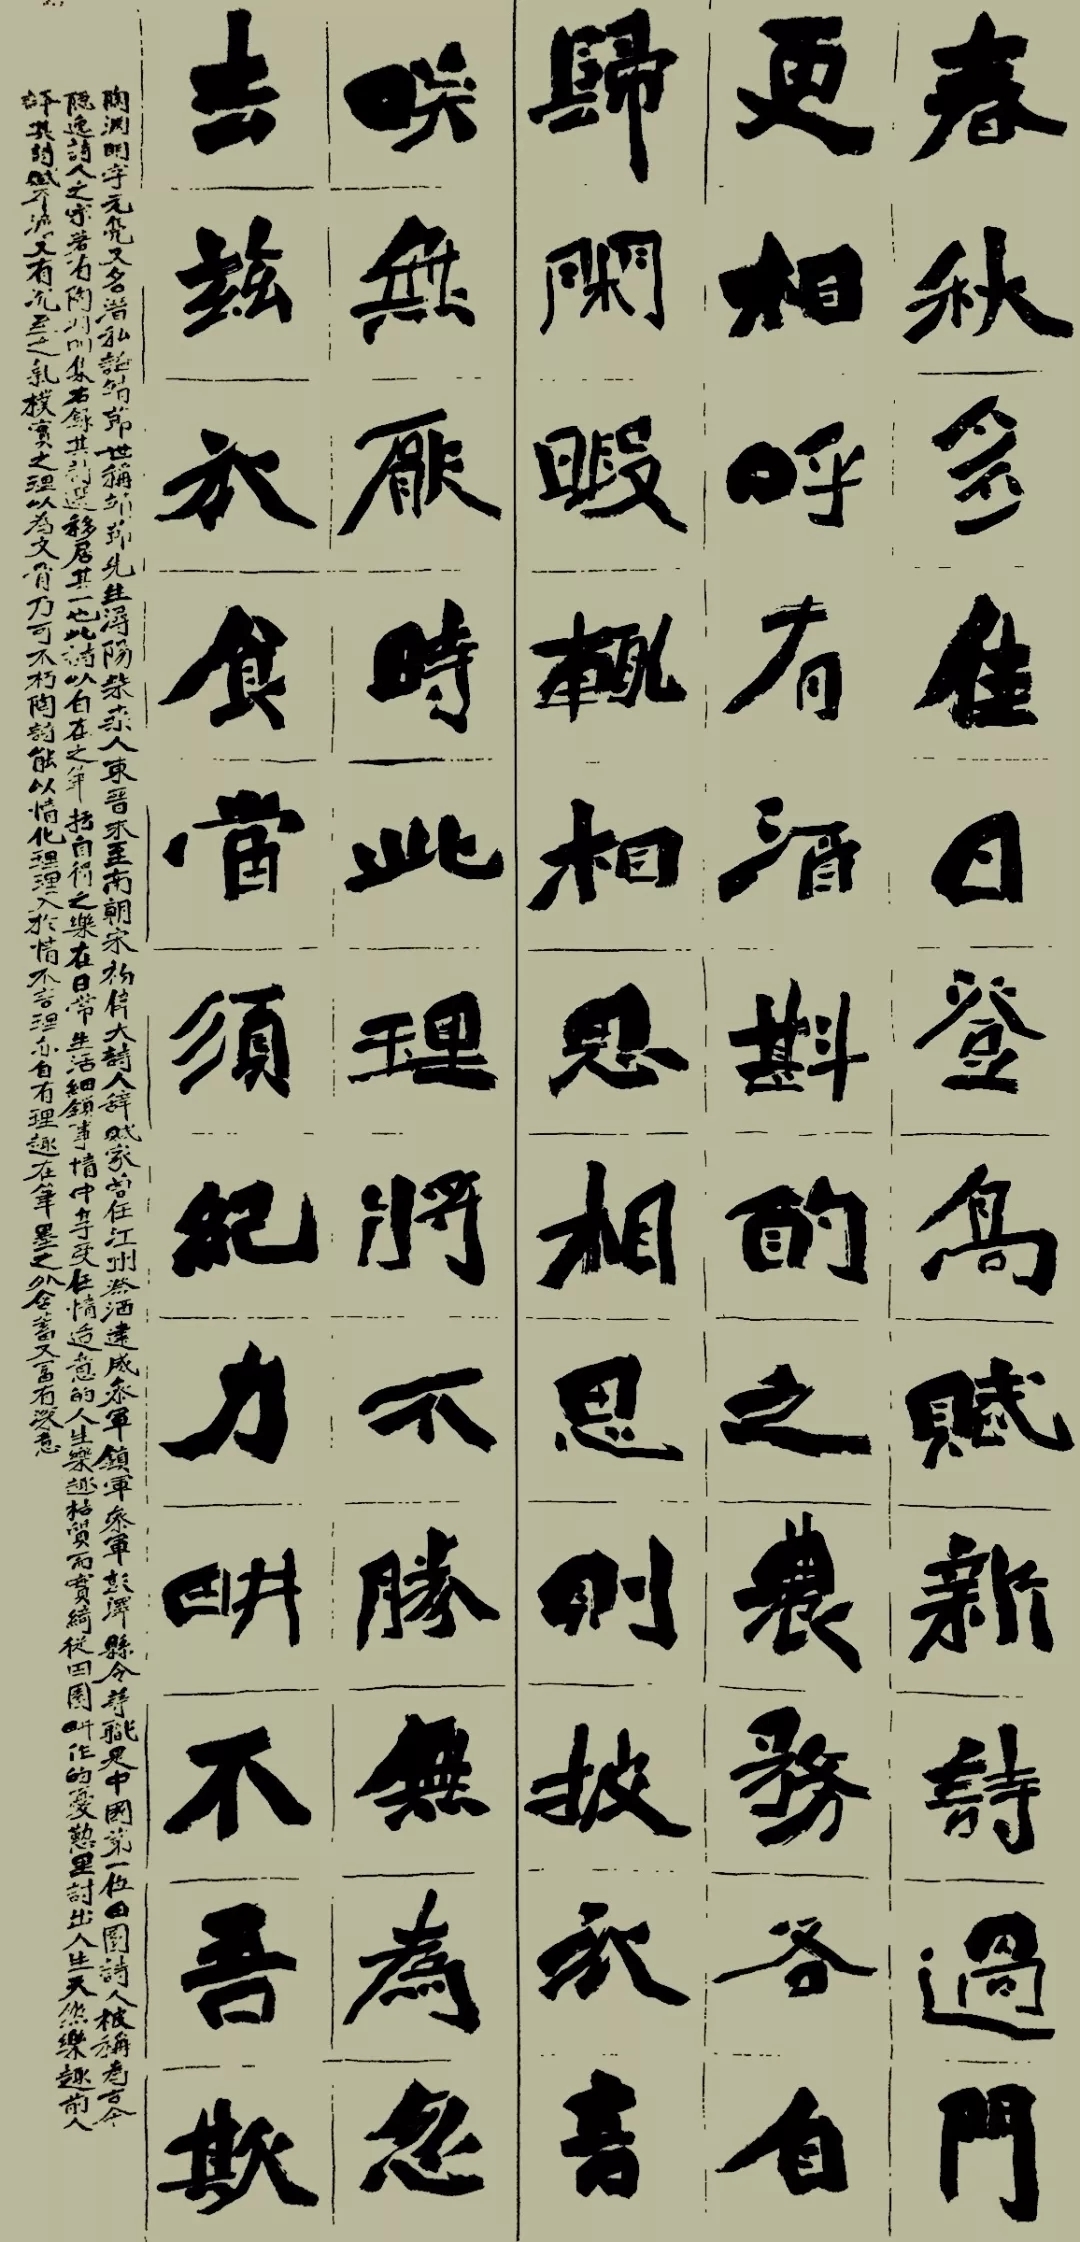 春秋多佳日登高賦新詩過門
更相呼有酒斟酌之農務各自
歸閑暇輒相思相思則披衣言
咲無厭時此理將不勝無為忽
去兹衣食當須紀力耕不吾欺
陶淵明字元亮又名潛私謚靖節世稱靖節先生潯陽柴桑人東晉末至南朝宋初偉大詩人辭賦家曾任江州祭酒建威參軍鎮軍參軍彭澤縣令等職是中國第一位田園詩人被稱為古今
隱逸詩人之宗著有陶淵明集右錄其詩選移居其一也此詩以自在之筆抒自得之樂在日常生活細鎖事情中享受任情适意的人生樂趣枯質而實綺從田園耕作的憂懃里討出人生天然樂趣前人
評其詩賦不流又有沉至之氣樸實之理以為文骨乃可不朽陶詩能以情化理理入於情不言理亦自有理趣在筆墨之外含蓄又富有深意